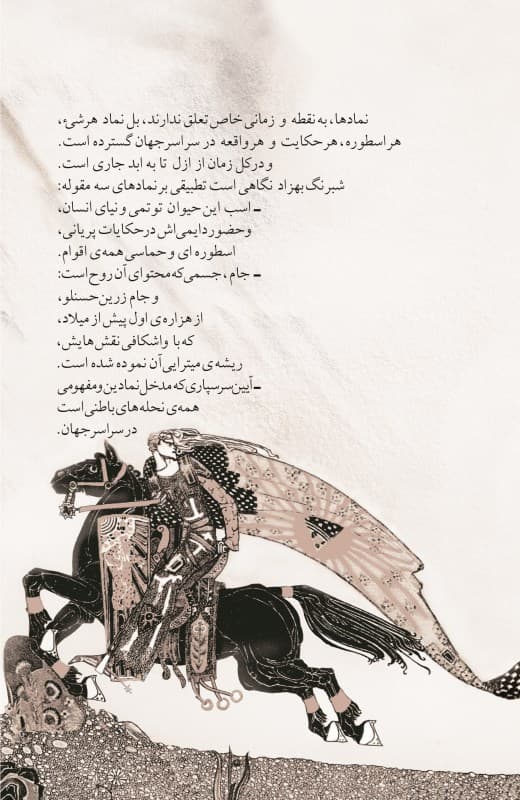 نمادها، به نقطه و زمانی خاص تعلق ندارند، بل نماد هرشیء،
هر اسطوره، هر حکایت و هر واقعه در سراسر جهان گسترده است.
و در کل زمان از ازل تا به ابد جاری است.
شبرنگ بهزاد نگاهی است تطبیقی بر نمادهای سه مقوله:
ـ اسب این حیوان توتمی و نیای انسان،
و حضور دایمی‌اش در حکایات پریانی،
اسطوره ای و حماسی همه‌ی اقوام.
ـ جام، جسمی که محتوای آن روح است:
و جام زرین حسنلو،
از هزاره‌ی اول پیش از میلاد،
که با واشکافی نقش‌هایش،
ریشه‌ی میترایی آن نموده شده است.
ـ آیین سرسپاری که مدخل نمادین و مفهومی
همه‌ی نحله‌های باطنی است
در سراسر جهان.